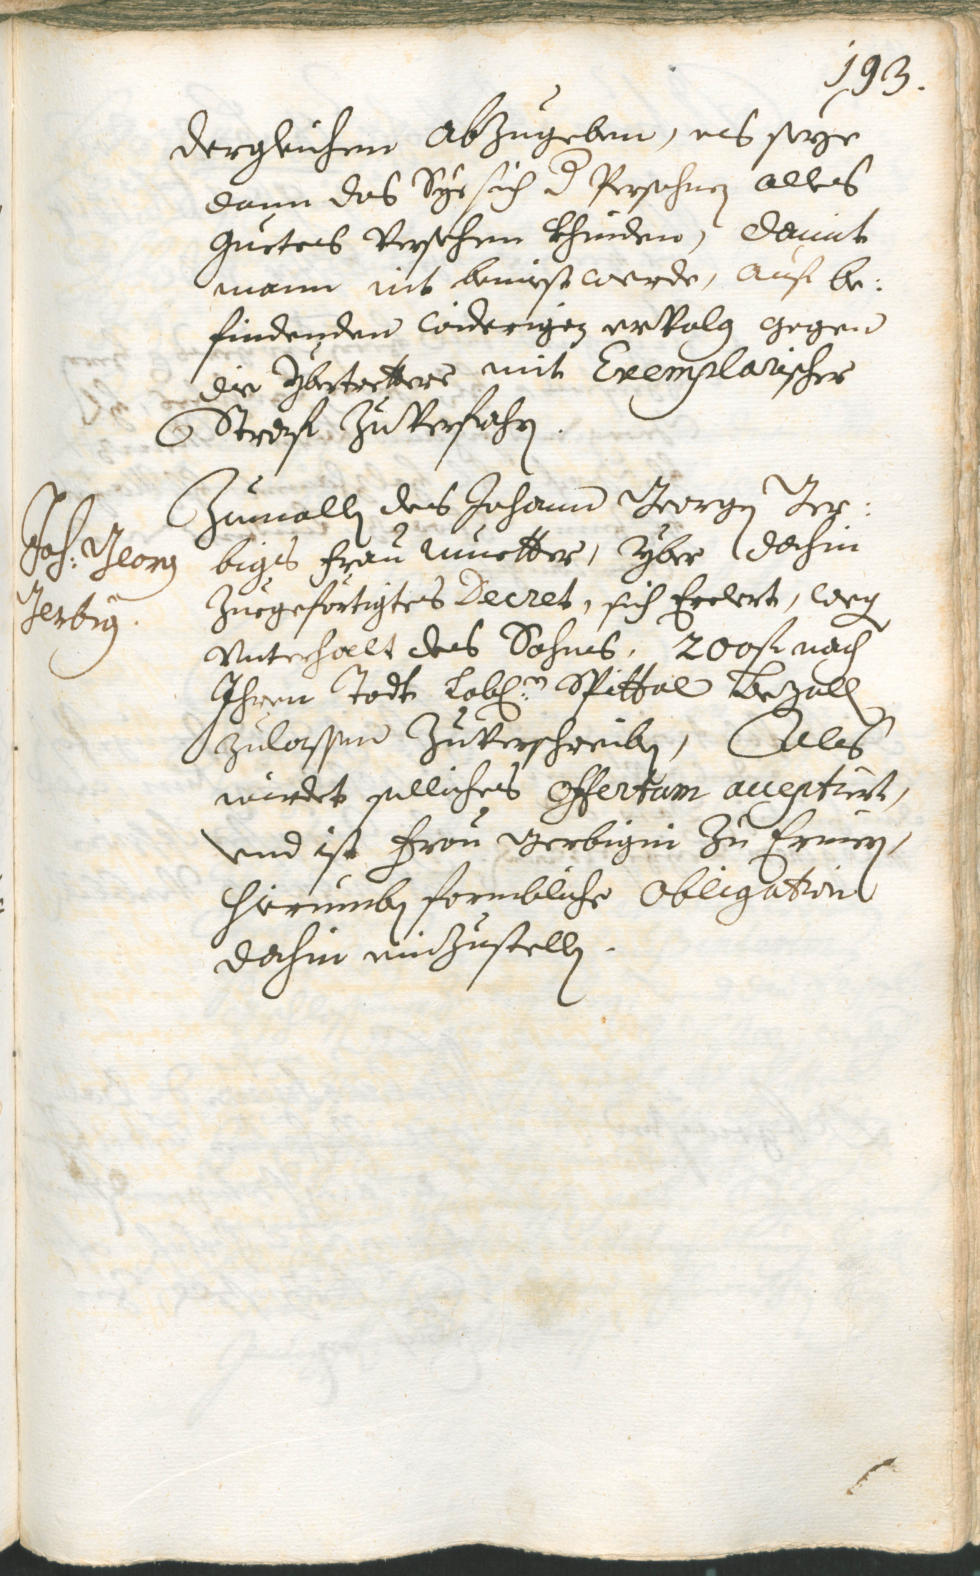 193.
dergleichen abzugeben, es seye
dann das Sye sich d Persohnen alles
guetes versehen khünden, damit
mann nit bemiest werde, auf be:
findenden widerigen ervolg gegen
die Ybertretters mit Exemplarischer
Straff zuverfahrn.
Joh: Georg
Gerbig.
Zumalln des Johann Georgen Ger:
bigs Frau Muetter, yber dahin
zuegefertigtes Decret, sich Erclert, weg
Unterhalt des Sohns, 200 fl nach
Ihren Todt Lobl: Spittal bezalln
zulassen zuverschreiben, Alls
würdet solliches offertum acceptiert,
und ist Frau Gerbigin zu
hierumben formbliche obligation
dahin einzustelln.